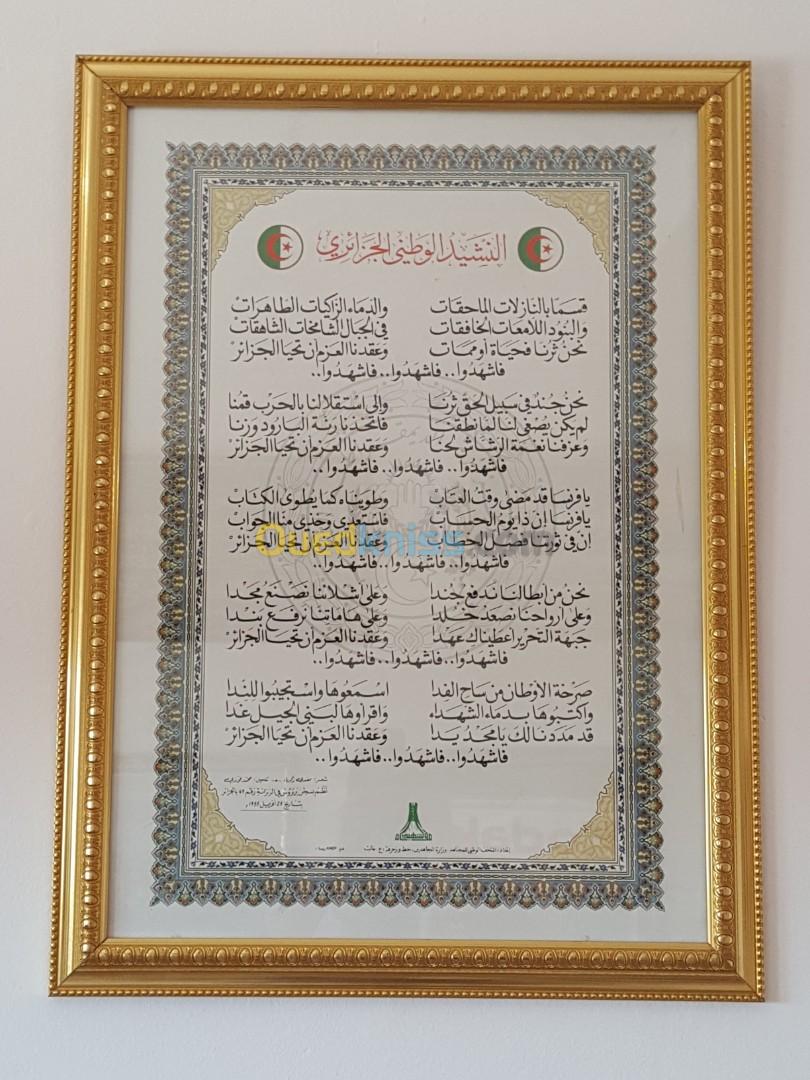 النشيد الوطني الجزائري
قسمًا بالنازلات الماحقات والدماء الزاكيات الطاهرات
والبنود اللامعات الخافقات في الجبال الشامخات الشاهقات
نحن ثرنا فحياة أو ممات وعقدنا العزم أن تحيا الجزائر
فاشهدوا.. فاشهدوا.. فاشهدوا..
نحن جند في سبيل الحق ثرنا وإلى استقلالنا بالحرب قمنا
لم يكن يصغى لنا لما نطقنا فاتخذنا رنة البارود وزنا
وعزفنا نغمة الرشاش لحنا وعقدنا العزم أن تحيا الجزائر
فاشهدوا.. فاشهدوا.. فاشهدوا..
يا فرنسا قد مضى وقت العتاب وطويناه كما يطوى الكتاب
يا فرنسا إن ذا يوم الحساب فاستعدي وخذي منا الجواب
إن في ثورتنا فصل الخطاب وعقدنا العزم أن تحيا الجزائر
Ouedkniss.com
فاشهدوا.. فاشهدوا.. فاشهدوا..
نحن من أبطالنا ندفع جندا وعلى أشلائنا نصنع مجدا
وعلى أرواحنا نصعد خلدا وعلى هاماتنا نرفع بندا
جبهة التحرير أعطيناك عهدا وعقدنا العزم أن تحيا الجزائر
فاشهدوا.. فاشهدوا.. فاشهدوا..
صرخة الأوطان من ساح الفدا اسمعوها واستجيبوا للندا
واكتبوها بدماء الشهداء واقرأوها لبني الجيل غدا
قد مددنا لك يا مجد يدا وعقدنا العزم أن تحيا الجزائر
فاشهدوا.. فاشهدوا.. فاشهدوا..
نظم بسجن بربروس في الزنزانة رقم 69 بالجزائر